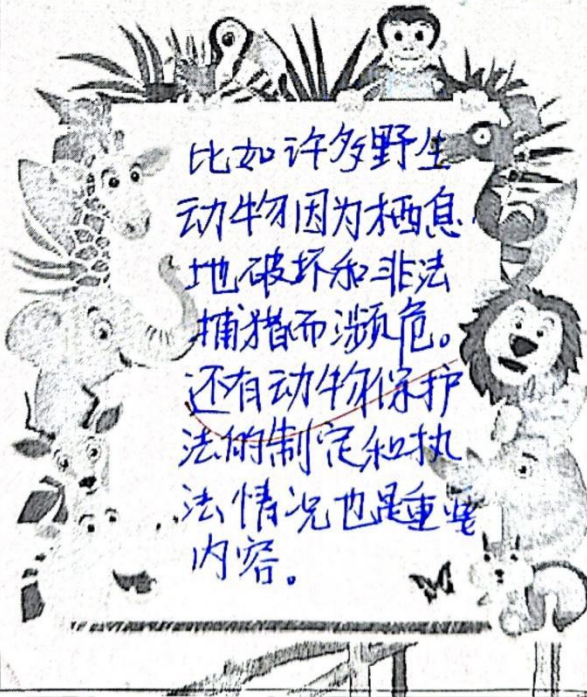 比如许多野生
动物因为栖息
地破坏和非法
捕猎而濒危。
还有动物保护
法的制定和执
法情况也是重要
内容。